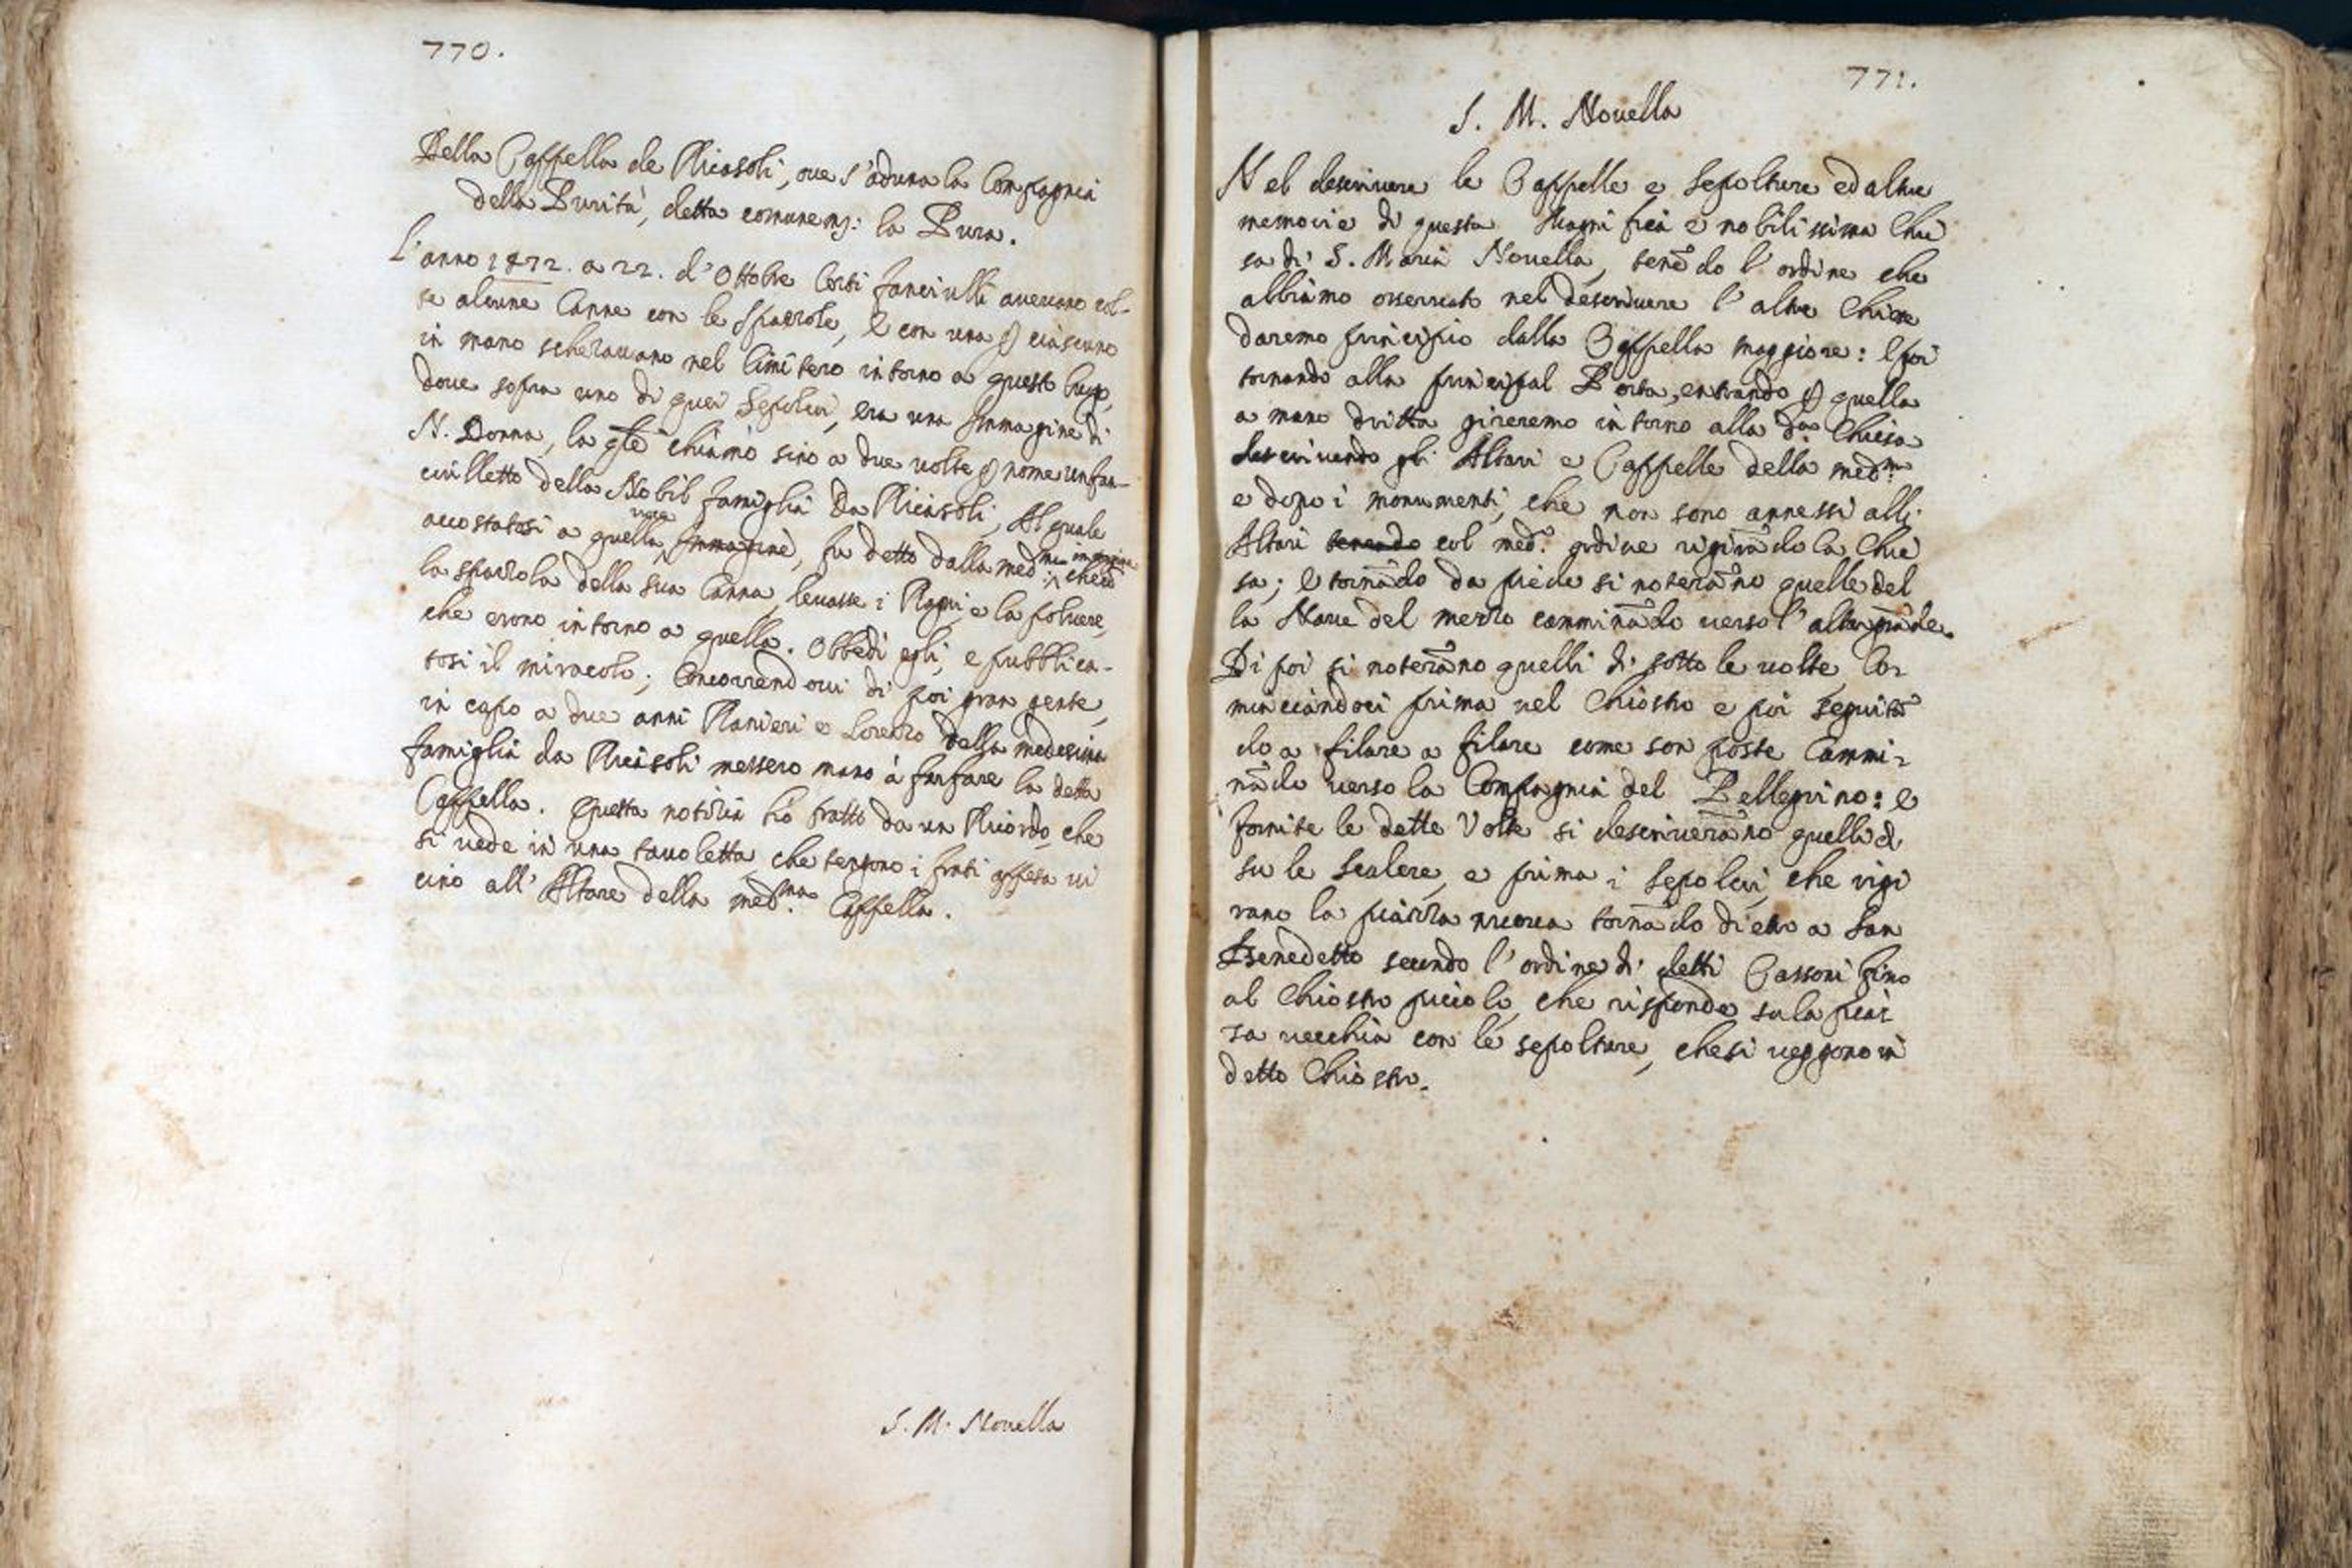 770.
Della Cappella de Ricasoli, oue s'aduna la Compagnia
della Purità, detta comunem: la Pura.
L'anno 1472. a 22. d'Ottobre Certi fanciulli aueuano col-
te alcune Canne con le Spazzole, e con una p ciascuno
in mano scherzauano nel Cimitero intorno a questo luogo,
doue sopra uno di quei Sepolcri, era una Immagine di
N. Donna, la qle chiamò sino a due uolte p nome un fan-
ciulletto della Nobil famiglia Da Ricasoli, Al quale
accostatosi a quella Immagine, fu detto dalla med:ma imagine che cō
la spazzola della sua Canna, leuasse i Ragni, e la poluere,
che erono intorno a quella. Obbedì egli, e pubblica-
tosi il miracolo; Concorrendoui di poi gran gente,
in capo a due anni Ranieri e Lorenzo della medesima
famiglia da Ricasoli messero mano à far fare la detta
Cappella. Questa notizia hò tratto da un Ricordo, che
si uede in una tauoletta, che tengono i frati appesa ui
cino all'Altare della med:ma Cappella.
S. M. Nouella
771.
S. M. Nouella
Nel descriuere le Cappelle e Sepolture ed altre
memorie di questa Magnifica e nobilissima Chie
sa di S. Maria Nouella, tenēdo l'ordine che
abbiamo osseruato nel descriuere l'altre Chiese
daremo principio dalla Cappella maggiore: e poi
tornando alla principal Porta, entrando p quella
a mano dritta gireremo intorno alla d:a Chiesa
descriuendo gli Altari e Cappelle della med:ma
e dopo i monumenti, che non sono annessi alli
Altari tenendo col med:o ordine rigirādo la Chie
sa; e tornādo da piede si noterāno quelle del
la Naue del mezzo camminādo uerso l'altar grāde.
Di poi si noterāno quelli di sotto le uolte, Co-
minciandoci prima nel Chiostro e poi seguitā
do a filare a filare come son poste Cammi-
nādo uerso la Compagnia del Pellegrino: e
fornite le dette Volte si descriuerāno quelle di
su le Scalere, e prima i sepolcri, che rigi
rano la piazza nuoua tornādo dietro a San
Benedetto secondo l'ordine di detti Cassoni fino
al Chiostro piciolo, che risponde su la piaz
za uecchia con le sepolture, che si ueggono in
detto Chiostro.